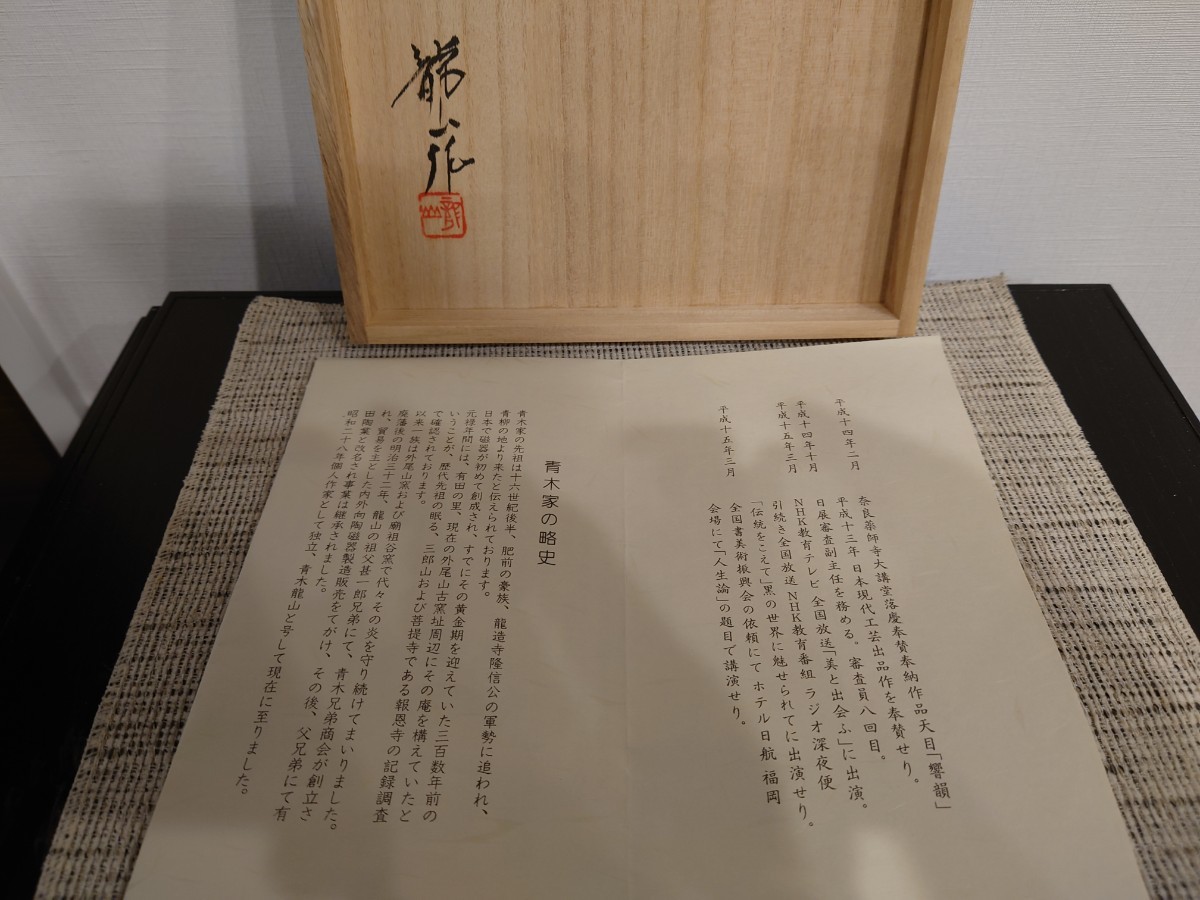 作
龍山
平成十四年二月
奈良薬師寺大講堂落慶奉賛奉納作品天目「響韻」
平成十三年日本現代工芸出品作を奉賛せり。
平成十四年十月
日展審査副主任を務める。審査員八回目。
平成十五年三月
NHK教育テレビ 全国放送「美と出会ふ」に出演。
引続き全国放送 NHK教育番組 ラジオ深夜便
「伝統をこえて」黒の世界に魅せられてに出演せり。
平成十五年三月
全国書美術振興会の依頼にて ホテル日航福岡
会場にて「人生論」の題目で講演せり。
青木家の略史
青木家の先祖は十六世紀後半、肥前の豪族、龍造寺隆信公の軍勢に追われ、
青柳の地より来たと伝えられております。
日本で磁器が初めて創成され、すでにその黄金期を迎えていた三百数年前の
元禄年間には、有田の里、現在の外尾山古窯址周辺にその庵を構えていたと
いうことが、歴代先祖の眠る、三郎山および菩提寺である報恩寺の記録調査
で確認されております。
以来一族は外尾山窯および廟祖谷窯で代々その炎を守り続けてまいりました。
廃藩後の明治三十二年、龍山の祖父甚一郎兄弟にて、青木兄弟商会が創立さ
れ、貿易を主とした内外向陶磁器製造販売をてがけ、その後、父兄弟にて有
田陶業と改名され事業は継承されました。
昭和二十八年個人作家として独立、青木龍山と号して現在に至りました。